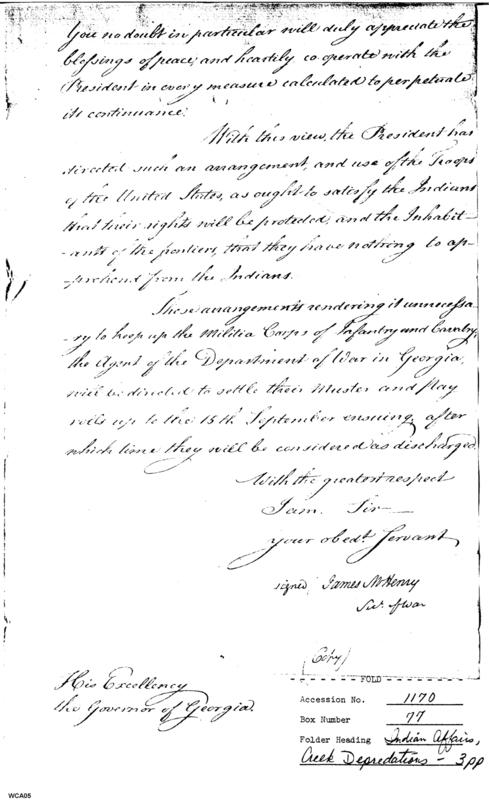 You no doubt in particular will duly appreciate the
blessings of peace, and heartily co operate with the
President in every measure calculated to perpetuate
its continuance.
With this view, the President has
directed such an arrangement, and use of the Troops
of the United States, as ought to satisfy the Indians
that their rights will be protected, and the Inhabit-
-ants of the frontiers, that they have nothing to ap-
-prehend from the Indians.
These arrangements rendering it unnecessa-
-ry to keep up the Militia Corps of Infantry and Cavalry,
the Agent of the Department of War in Georgia,
will be directed to settle their Muster and Pay
rolls up to the 15th September ensuing, after
which time they will be considered as discharged.
With the greatest respect
I am. Sir
your obedt. Servant,
signed James McHenry
Sec. of War
(Copy)
FOLD
His Excellency
the Governor of Georgia.
Accession No. 1170
Box Number 77
Folder Heading Indian Affairs,
Creek Depredations - 3pp
WCA05